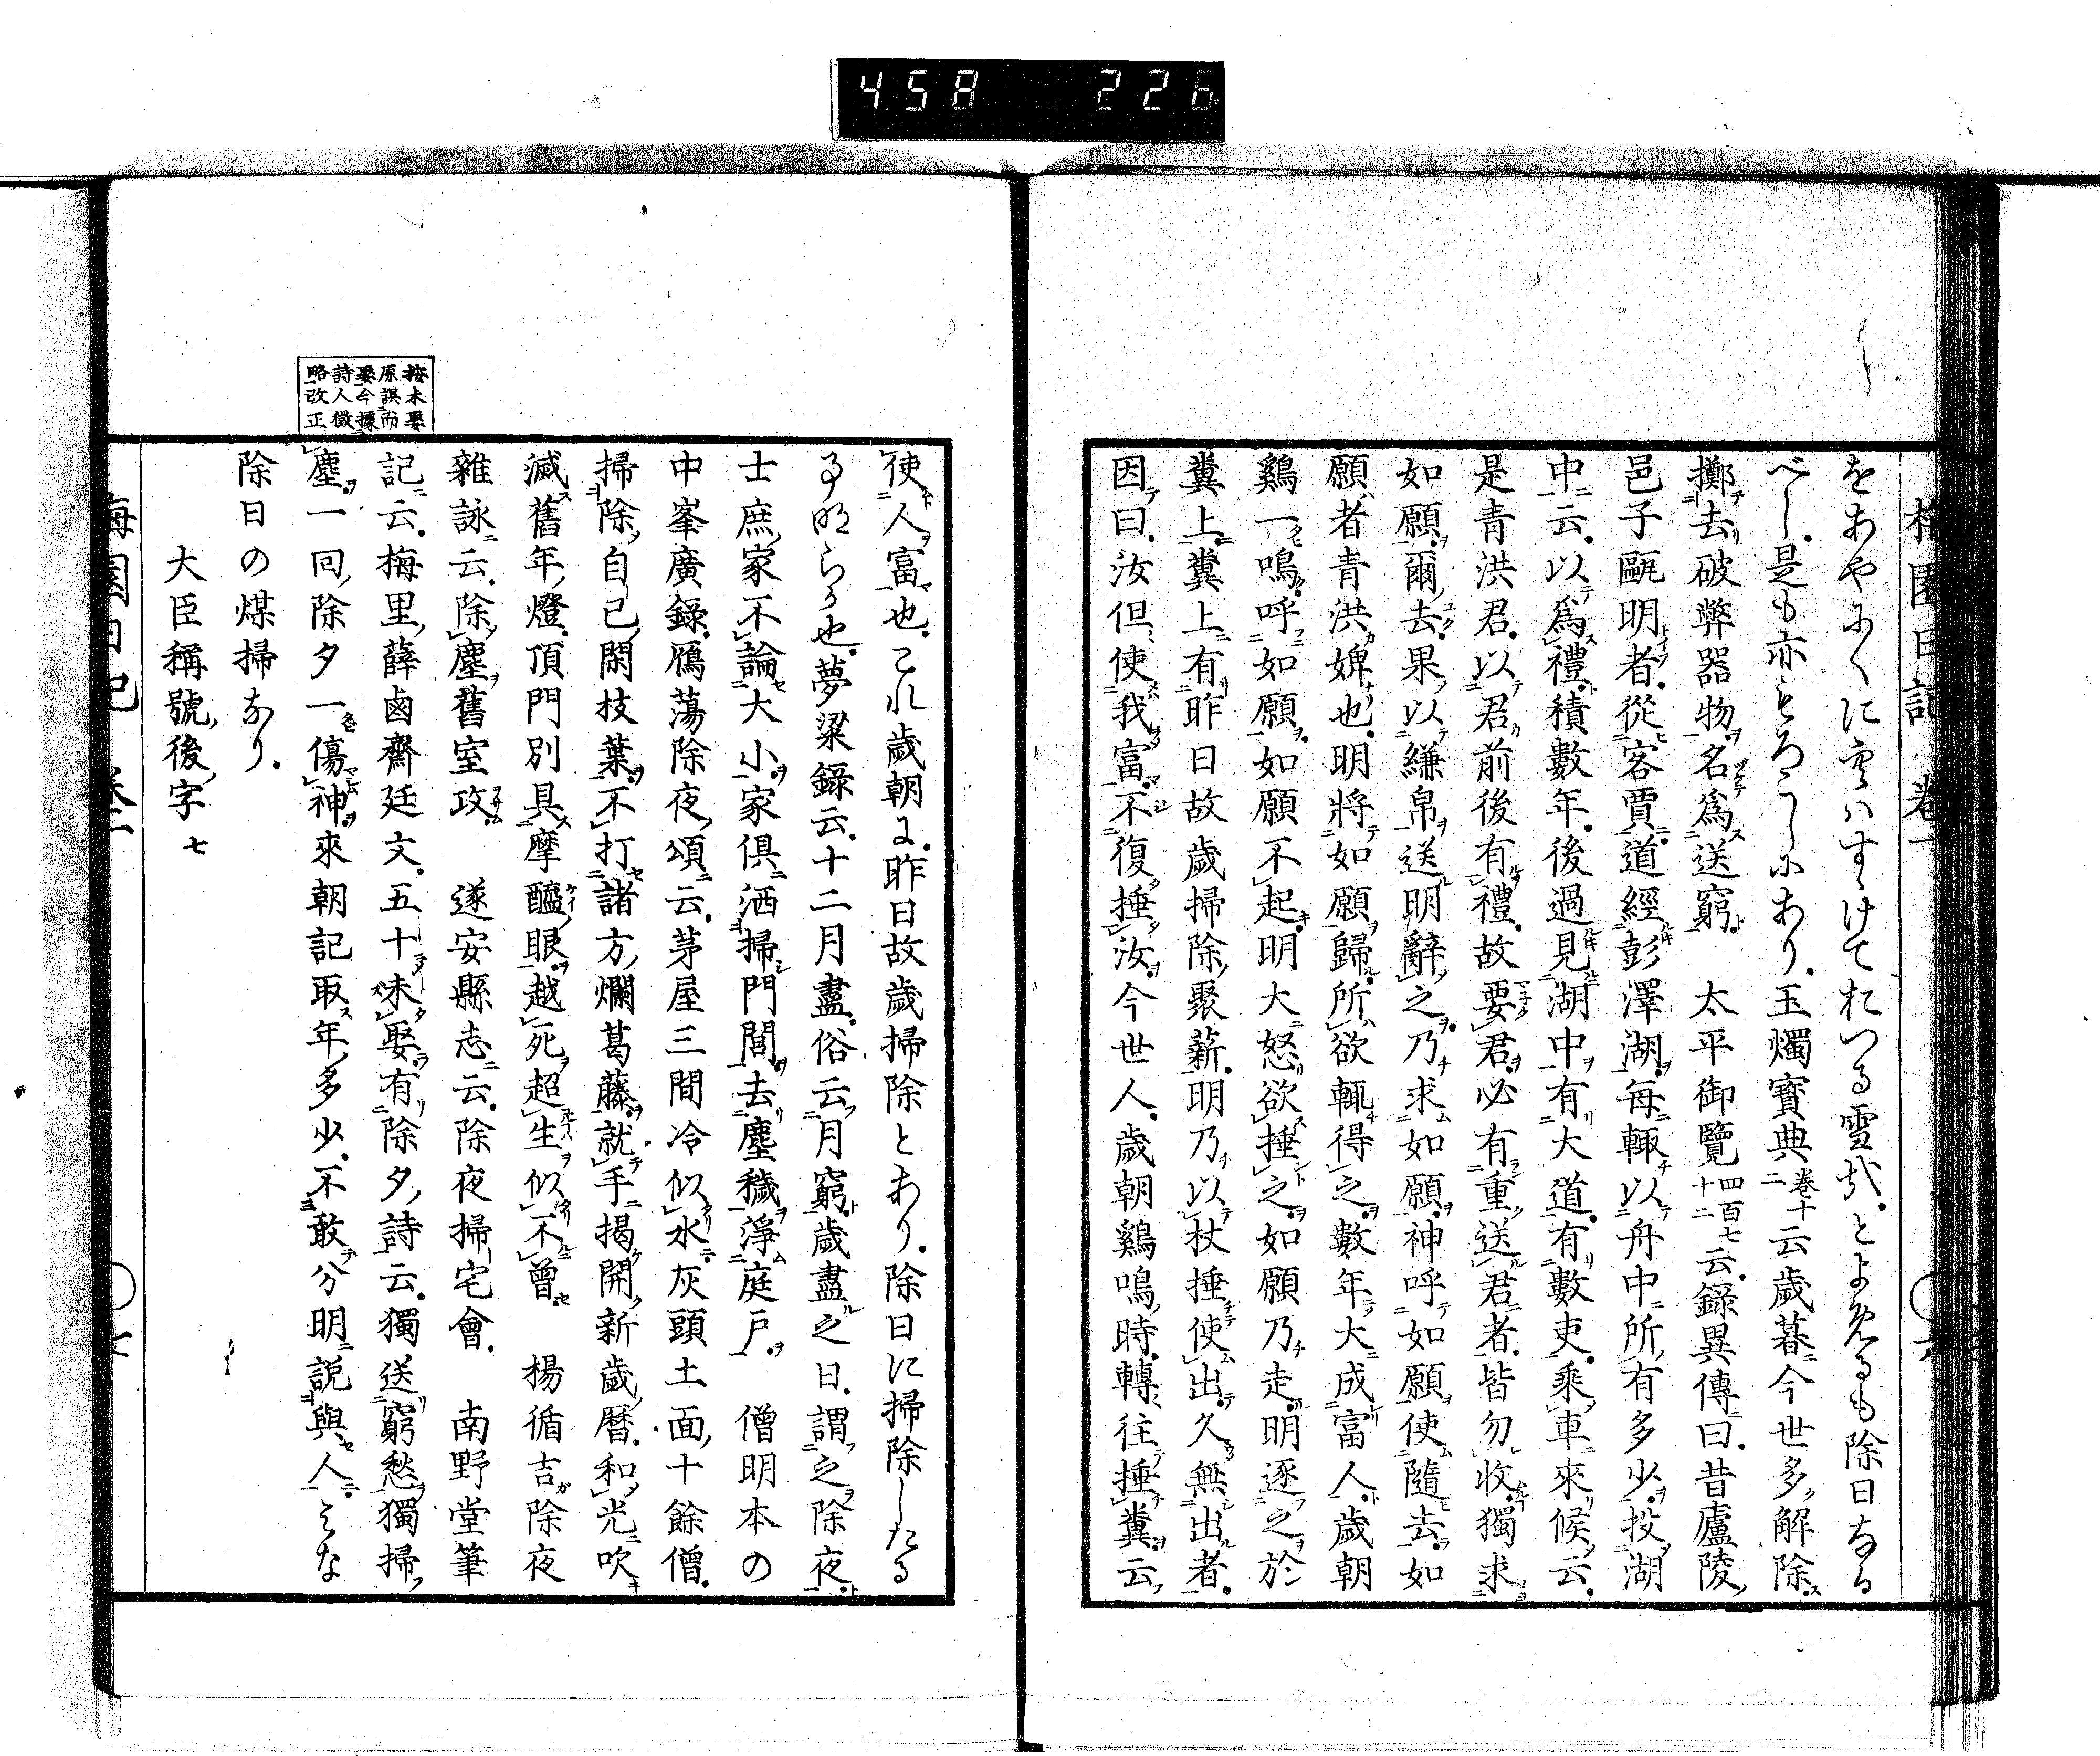 458 226
梅園日記 卷一
をあやにくに雲はすゝけておつる雪哉。とよめるも除日なる
べし。是も亦もろこしにあり。玉燭寶典卷十二云歳暮今世多解除。
擲去破弊器物。名爲送窮 太平御覽四百七十二云。錄異傳曰。昔廬陵
邑子甌明者。從客賈。道經彭澤湖。每輙以舟中所有多少。投湖
中云。以爲禮。積數年。後過見湖中有大道。有數吏。乘車來候云。
是青洪君。以君前後有禮。故要君。必有重送君者。皆勿收。獨求
如願。爾去。果以縑帛送明辭之。乃求如願。神呼如願使隨去。如
願者青洪婢也。明將如願歸。所欲輒得之。數年大成富人。歳朝
鷄一鳴。呼如願。如願不起。明大怒。欲捶之。如願乃走。明逐之於
糞上。糞上有昨日故歳掃除聚薪。明乃以杖捶使出。久無出者。
因曰。汝但使我富。不復捶汝。今世人。歳朝鷄鳴時。轉往捶糞。云
使人富也。これ歳朝に。昨日故歳掃除とあり。除日に掃除したる
事明らか也。夢粱錄云。十二月盡。俗云月窮歳盡之日。謂之除夜。
士庶家不論大小。家俱洒掃門閭。去塵穢。淨庭戸。 僧明本の
中峯廣錄。鴈蕩除夜頌云。茅屋三間冷似水。灰頭土面十餘僧。
掃除自己閑枝葉。不打諸方爛葛藤。就手揭開新歳曆。和光吹
滅舊年燈。頂門別具摩醯眼。越死超生似不曾。 楊循吉除夜
雜詠云。除塵舊室攻。 遂安縣志云。除夜掃宅會。 南野堂筆
記云。梅里薛鹵齋廷文。五十未娶。有除夕詩云。獨送窮愁獨掃
塵。一回除夕一傷神。來朝記取年多少。不敢分明説與人。みな
除日の煤掃なり。
大臣稱號後字 七
按未娶
原誤而
娶今據
詩人徵
略改正
梅園日記 卷一 七